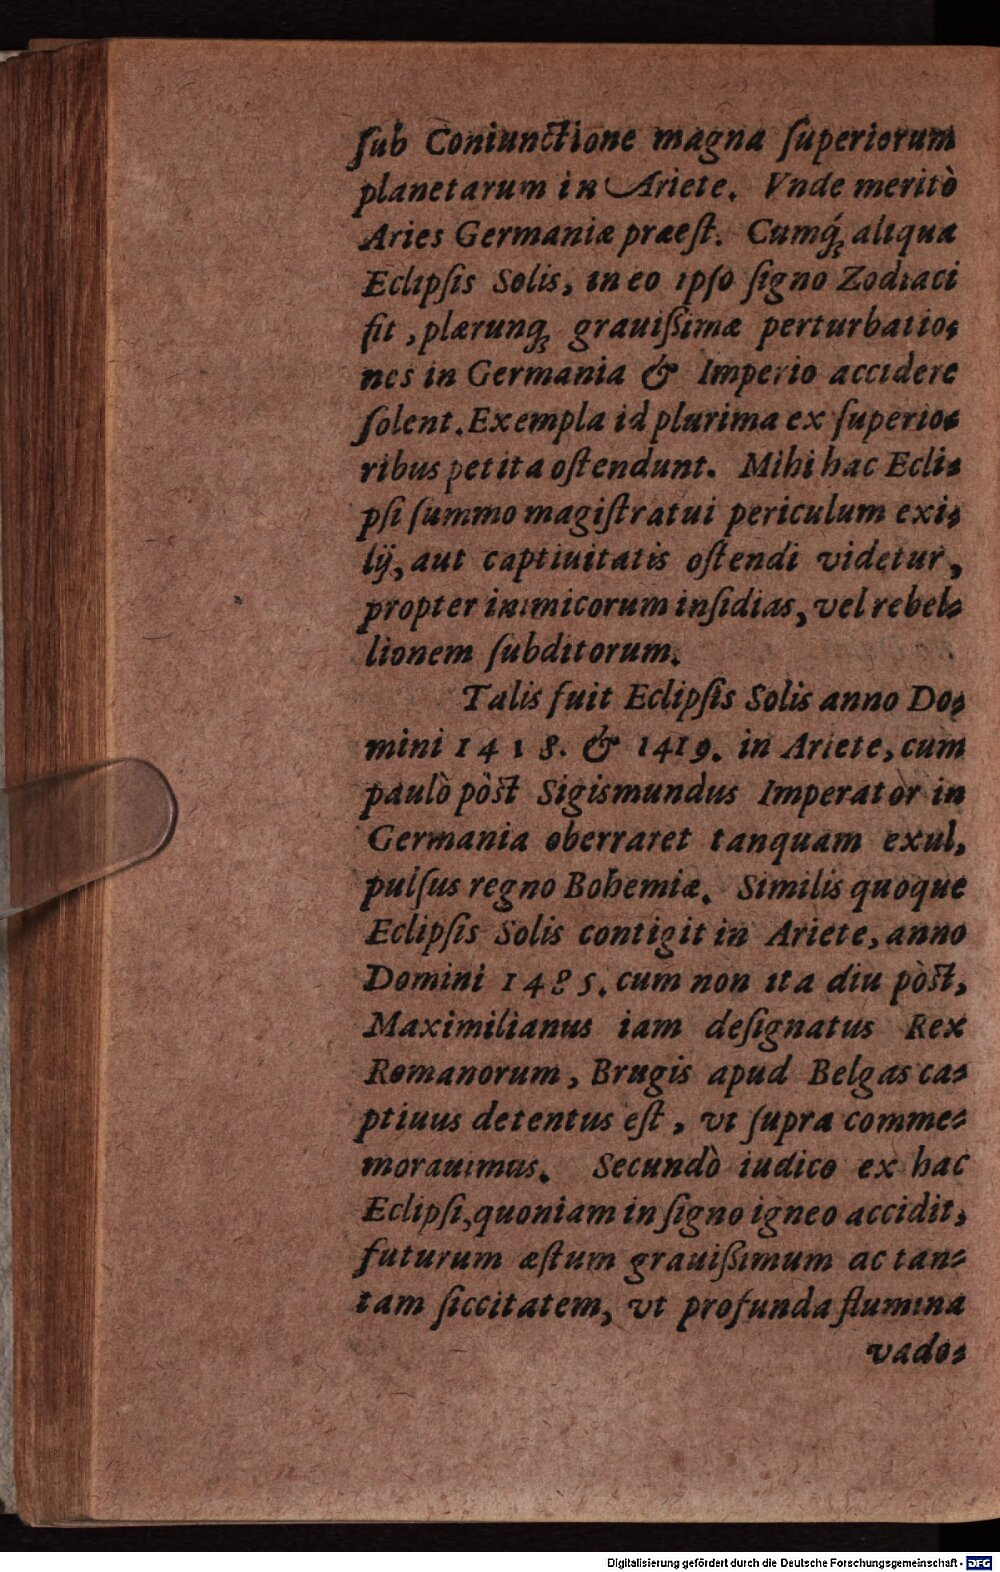 ſub Coniunctione magna ſuperiorum
planetarum in Ariete. Vnde meritò
Aries Germaniæ præeſt. Cumq́ꝫ aliqua
Eclipſis Solis, in eo ipſo ſigno Zodiaci
fit, plærunqꝫ grauiſsimæ perturbatio⸗
nes in Germania & Imperio accidere
ſolent. Exempla id plurima ex ſuperio⸗
ribus petita oſtendunt. Mihi hac Ecli⸗
pſi ſummo magiſtratui periculum exi⸗
lij, aut captiuitatis oſtendi videtur,
propter inimicorum inſidias, vel rebel⸗
lionem ſubditorum.
Talis fuit Eclipſis Solis anno Do⸗
mini 1418. & 1419. in Ariete, cum
paulò pòſt Sigismundus Imperator in
Germania oberraret tanquam exul,
pulſus regno Bohemiæ. Similis quoque
Eclipſis Solis contigit in Ariete, anno
Domini 1485. cum non ita diu pòſt,
Maximilianus iam deſignatus Rex
Romanorum, Brugis apud Belgas ca⸗
ptiuus detentus eſt, vt ſupra comme⸗
morauimus. Secundò iudico ex hac
Eclipſi, quoniam in ſigno igneo accidit,
futurum æſtum grauiſsimum ac tan⸗
tam ſiccitatem, vt profunda flumina
vado⸗
Digitalisierung gefördert durch die Deutsche Forschungsgemeinschaft - DFG